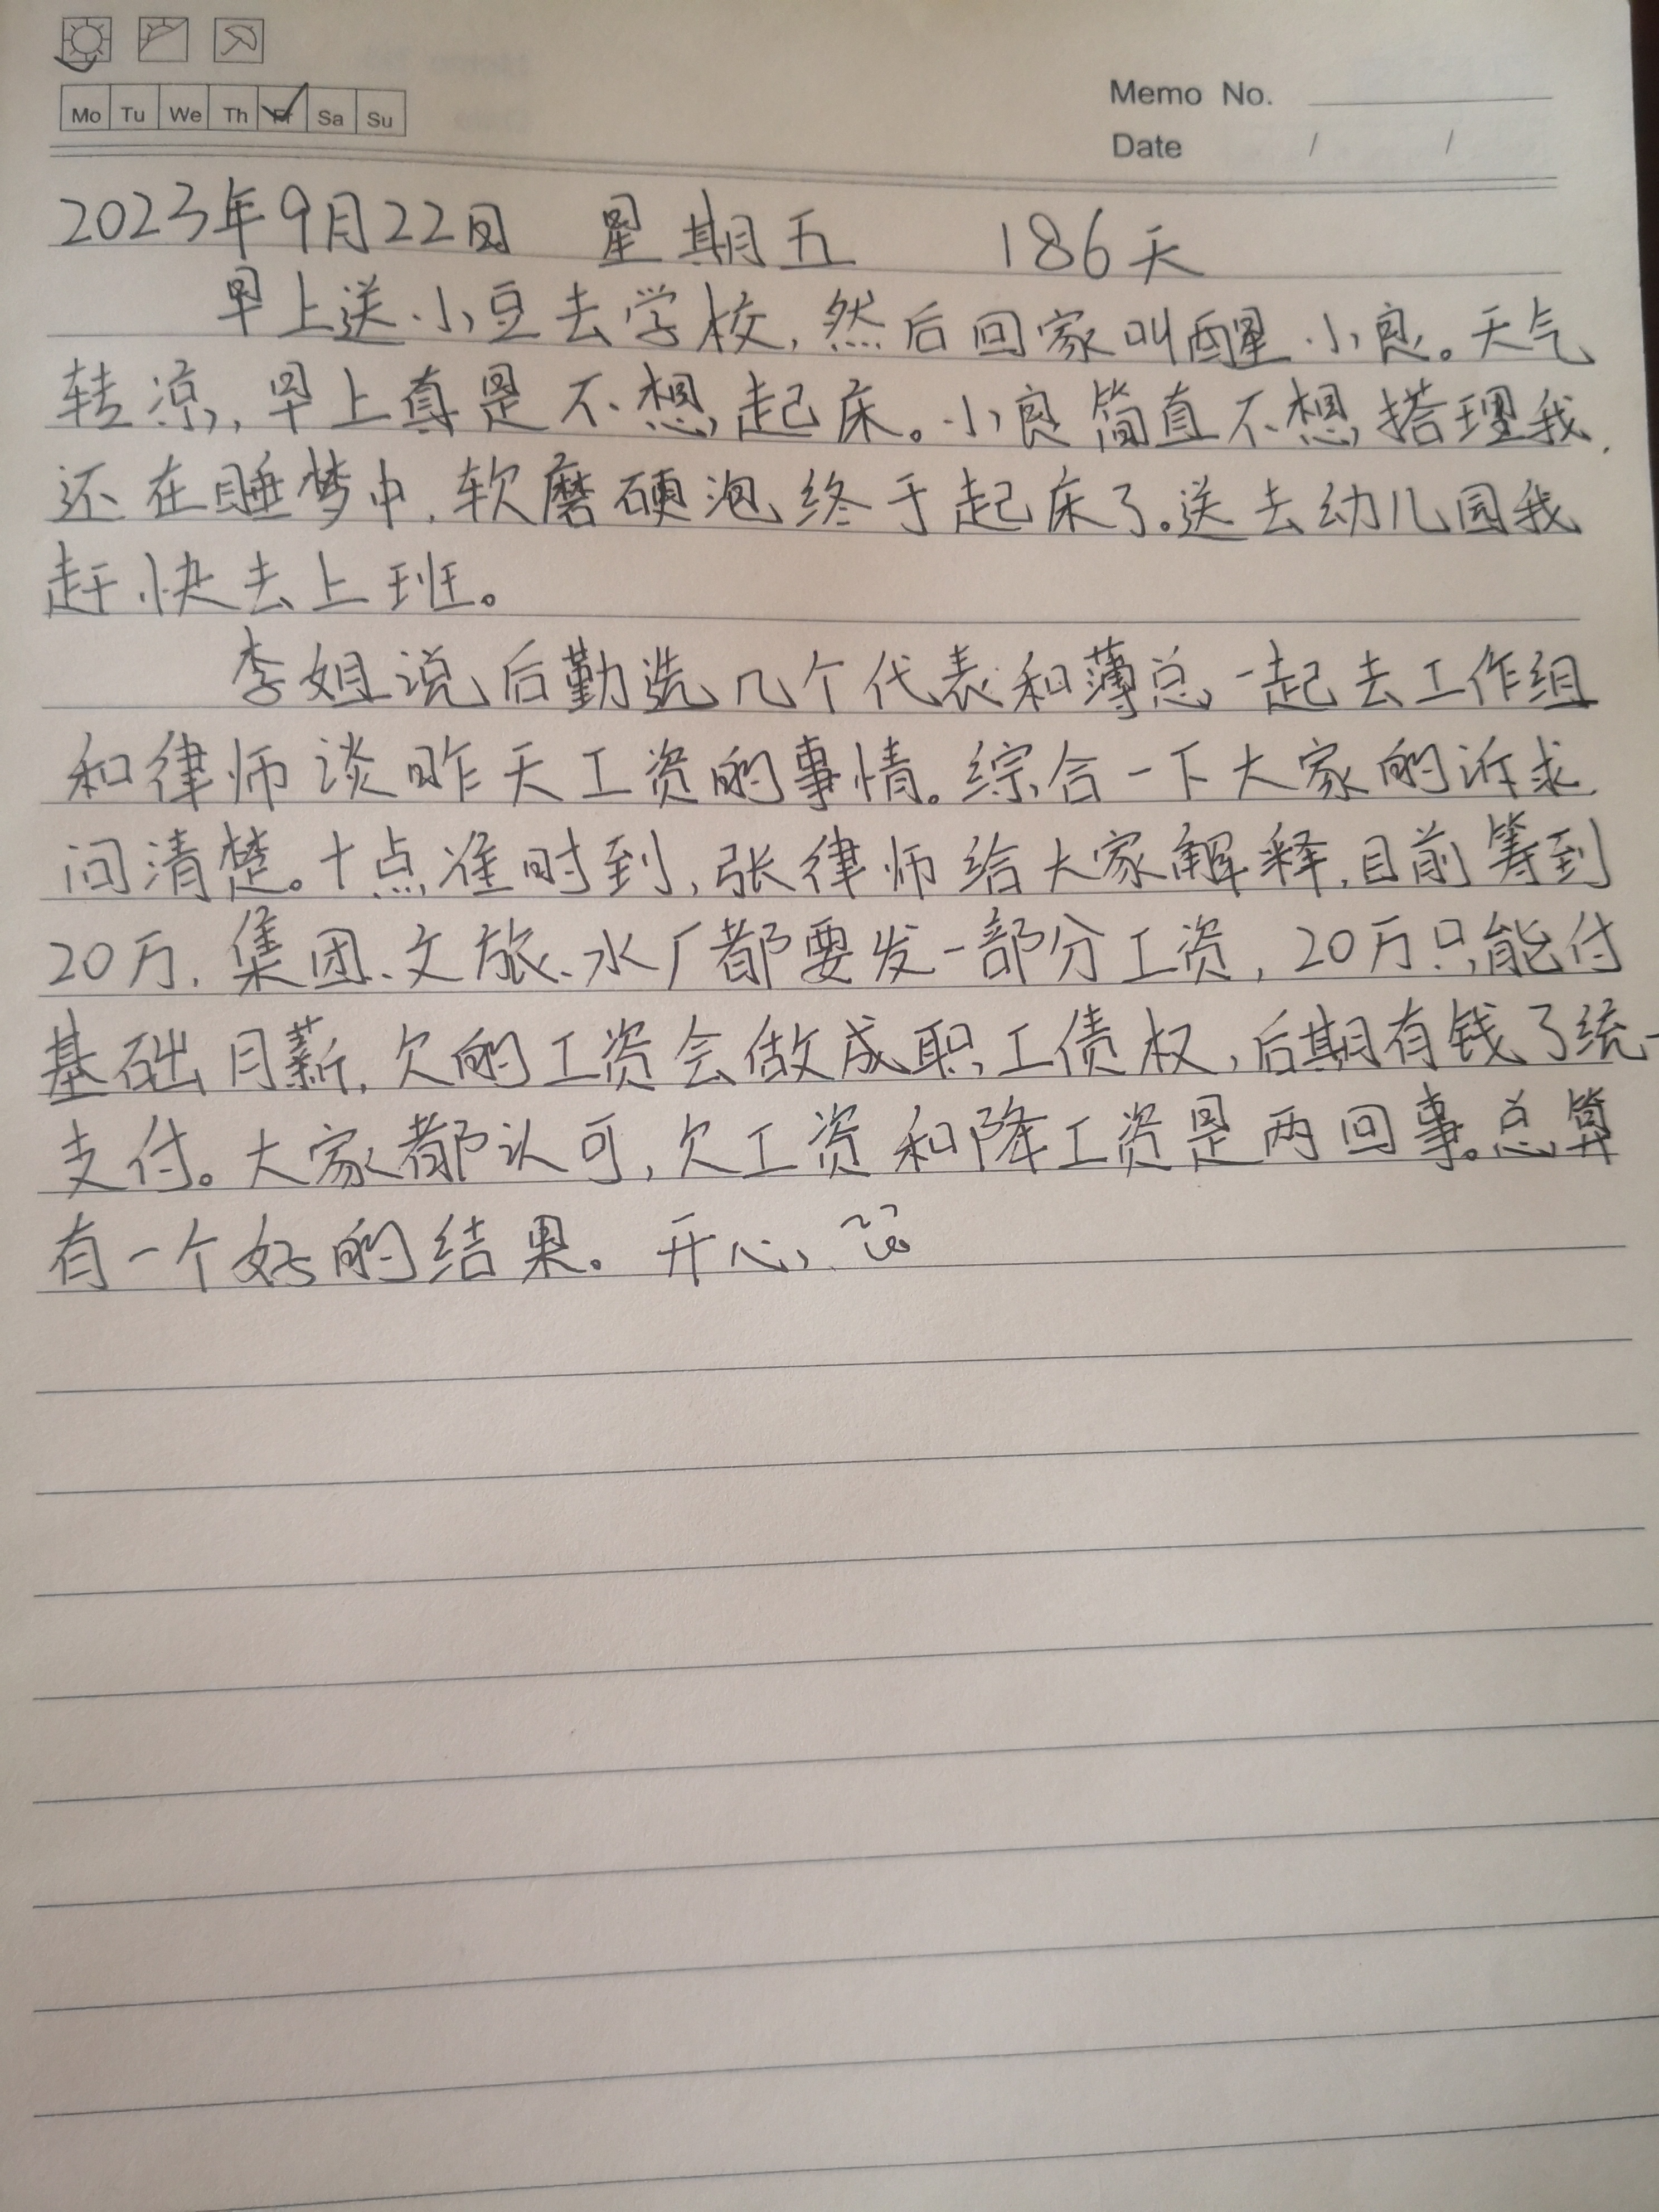 Mo Tu We Th Fr Sa Su
Memo No.
Date / /
2023年9月22日 星期五 186天
早上送小豆去学校,然后回家叫醒小良。天气
转凉,早上真是不想起床。小良简直不想搭理我,
还在睡梦中,软磨硬泡终于起床了。送去幼儿园我
赶快去上班。
李姐说后勤选几个代表和薄总一起去工作组
和律师谈昨天工资的事情。综合一下大家的诉求,
问清楚。十点准时到,张律师给大家解释,目前筹到
20万,集团、文旅、水厂都要发一部分工资,20万只能付
基础月薪,欠的工资会做成职工债权,后期有钱了统一
支付。大家都认可,欠工资和降工资是两回事。总算
有一个好的结果。开心